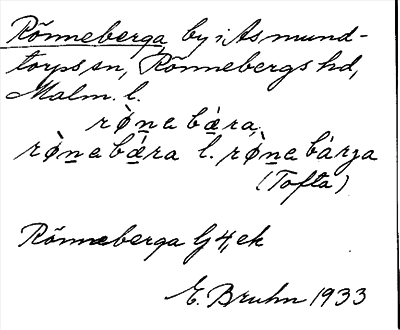 Rönneberga by i Asmund-
torps sn, Rönnebergs hd,
Malm. l.
rø̀n̲a bǽra.
rø̀n̲a bǽra l. rø̀n̲a bárja
(Tofta)
Rönneberga Gj 4, ek
E. Bruhn 1933